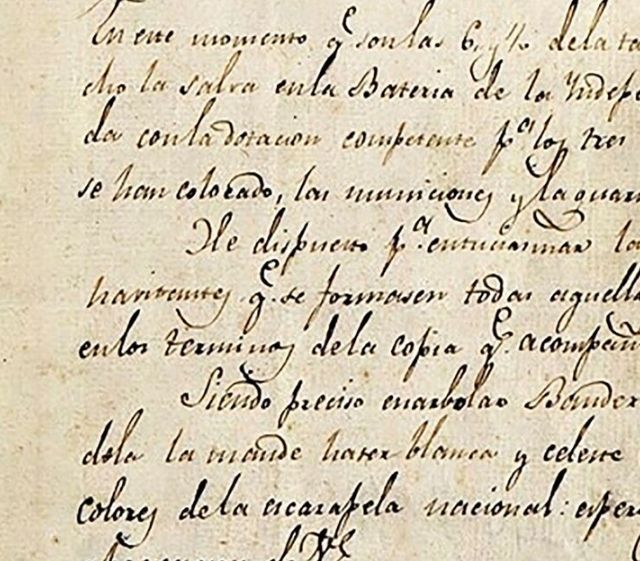 En este momento q.e son las 6 y ½ dela ta
cho la salva enla Bateria de la Yndepe
da conla dotacion competente p.a los tres
se han colocado, las municiones y la guarn
He dispuesto p.a entuciasmar la
havitantes q.e se formasen todas aquella
enlos terminos dela copia q.e acompañ
Siendo preciso enarbolar Bander
dola la mandé hacer blanca y celeste
colores de la escarapela nacional: esper